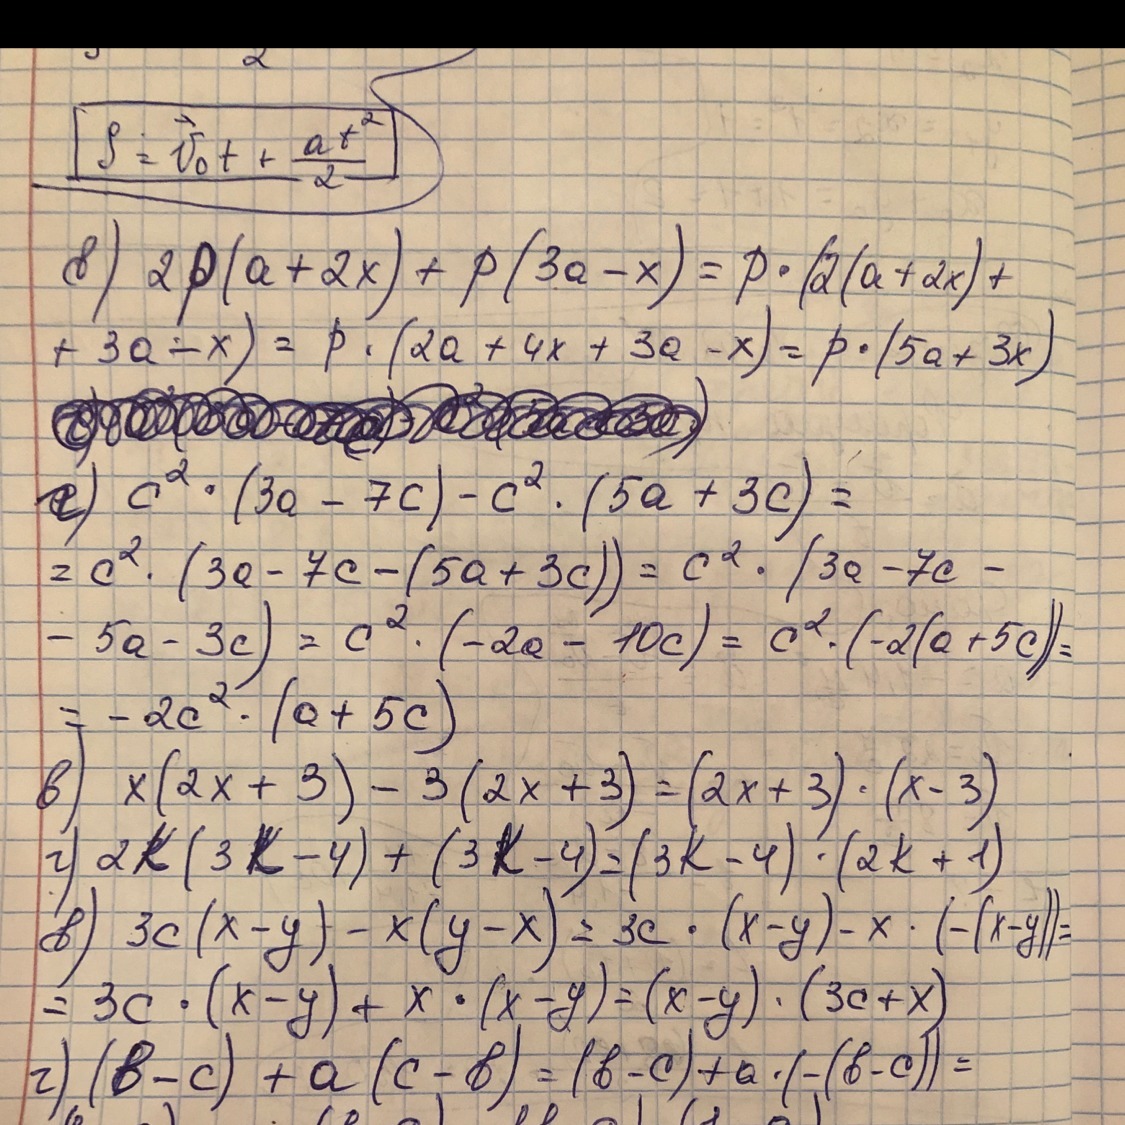 S = v⃗₀t + at²/2
в) 2p(a+2x) + p(3a-x) = p·(2(a+2x)+
+3a-x) = p·(2a+4x+3a-x) = p·(5a+3x)
г) c²·(3a-7c)-c²·(5a+3c) =
= c²·(3a-7c-(5a+3c)) = c²·(3a-7c-
-5a-3c) = c²·(-2a-10c) = c²·(-2(a+5c))=
= -2c²·(a+5c)
в) x(2x+3)-3(2x+3)=(2x+3)·(x-3)
г) 2k(3k-4)+(3k-4)=(3k-4)·(2k+1)
в) 3c(x-y)-x(y-x)=3c·(x-y)-x·(-(x-y))=
= 3c·(x-y)+x·(x-y)=(x-y)·(3c+x)
г) (в-c)+a(c-в)=(в-c)+a·(-(в-c))=